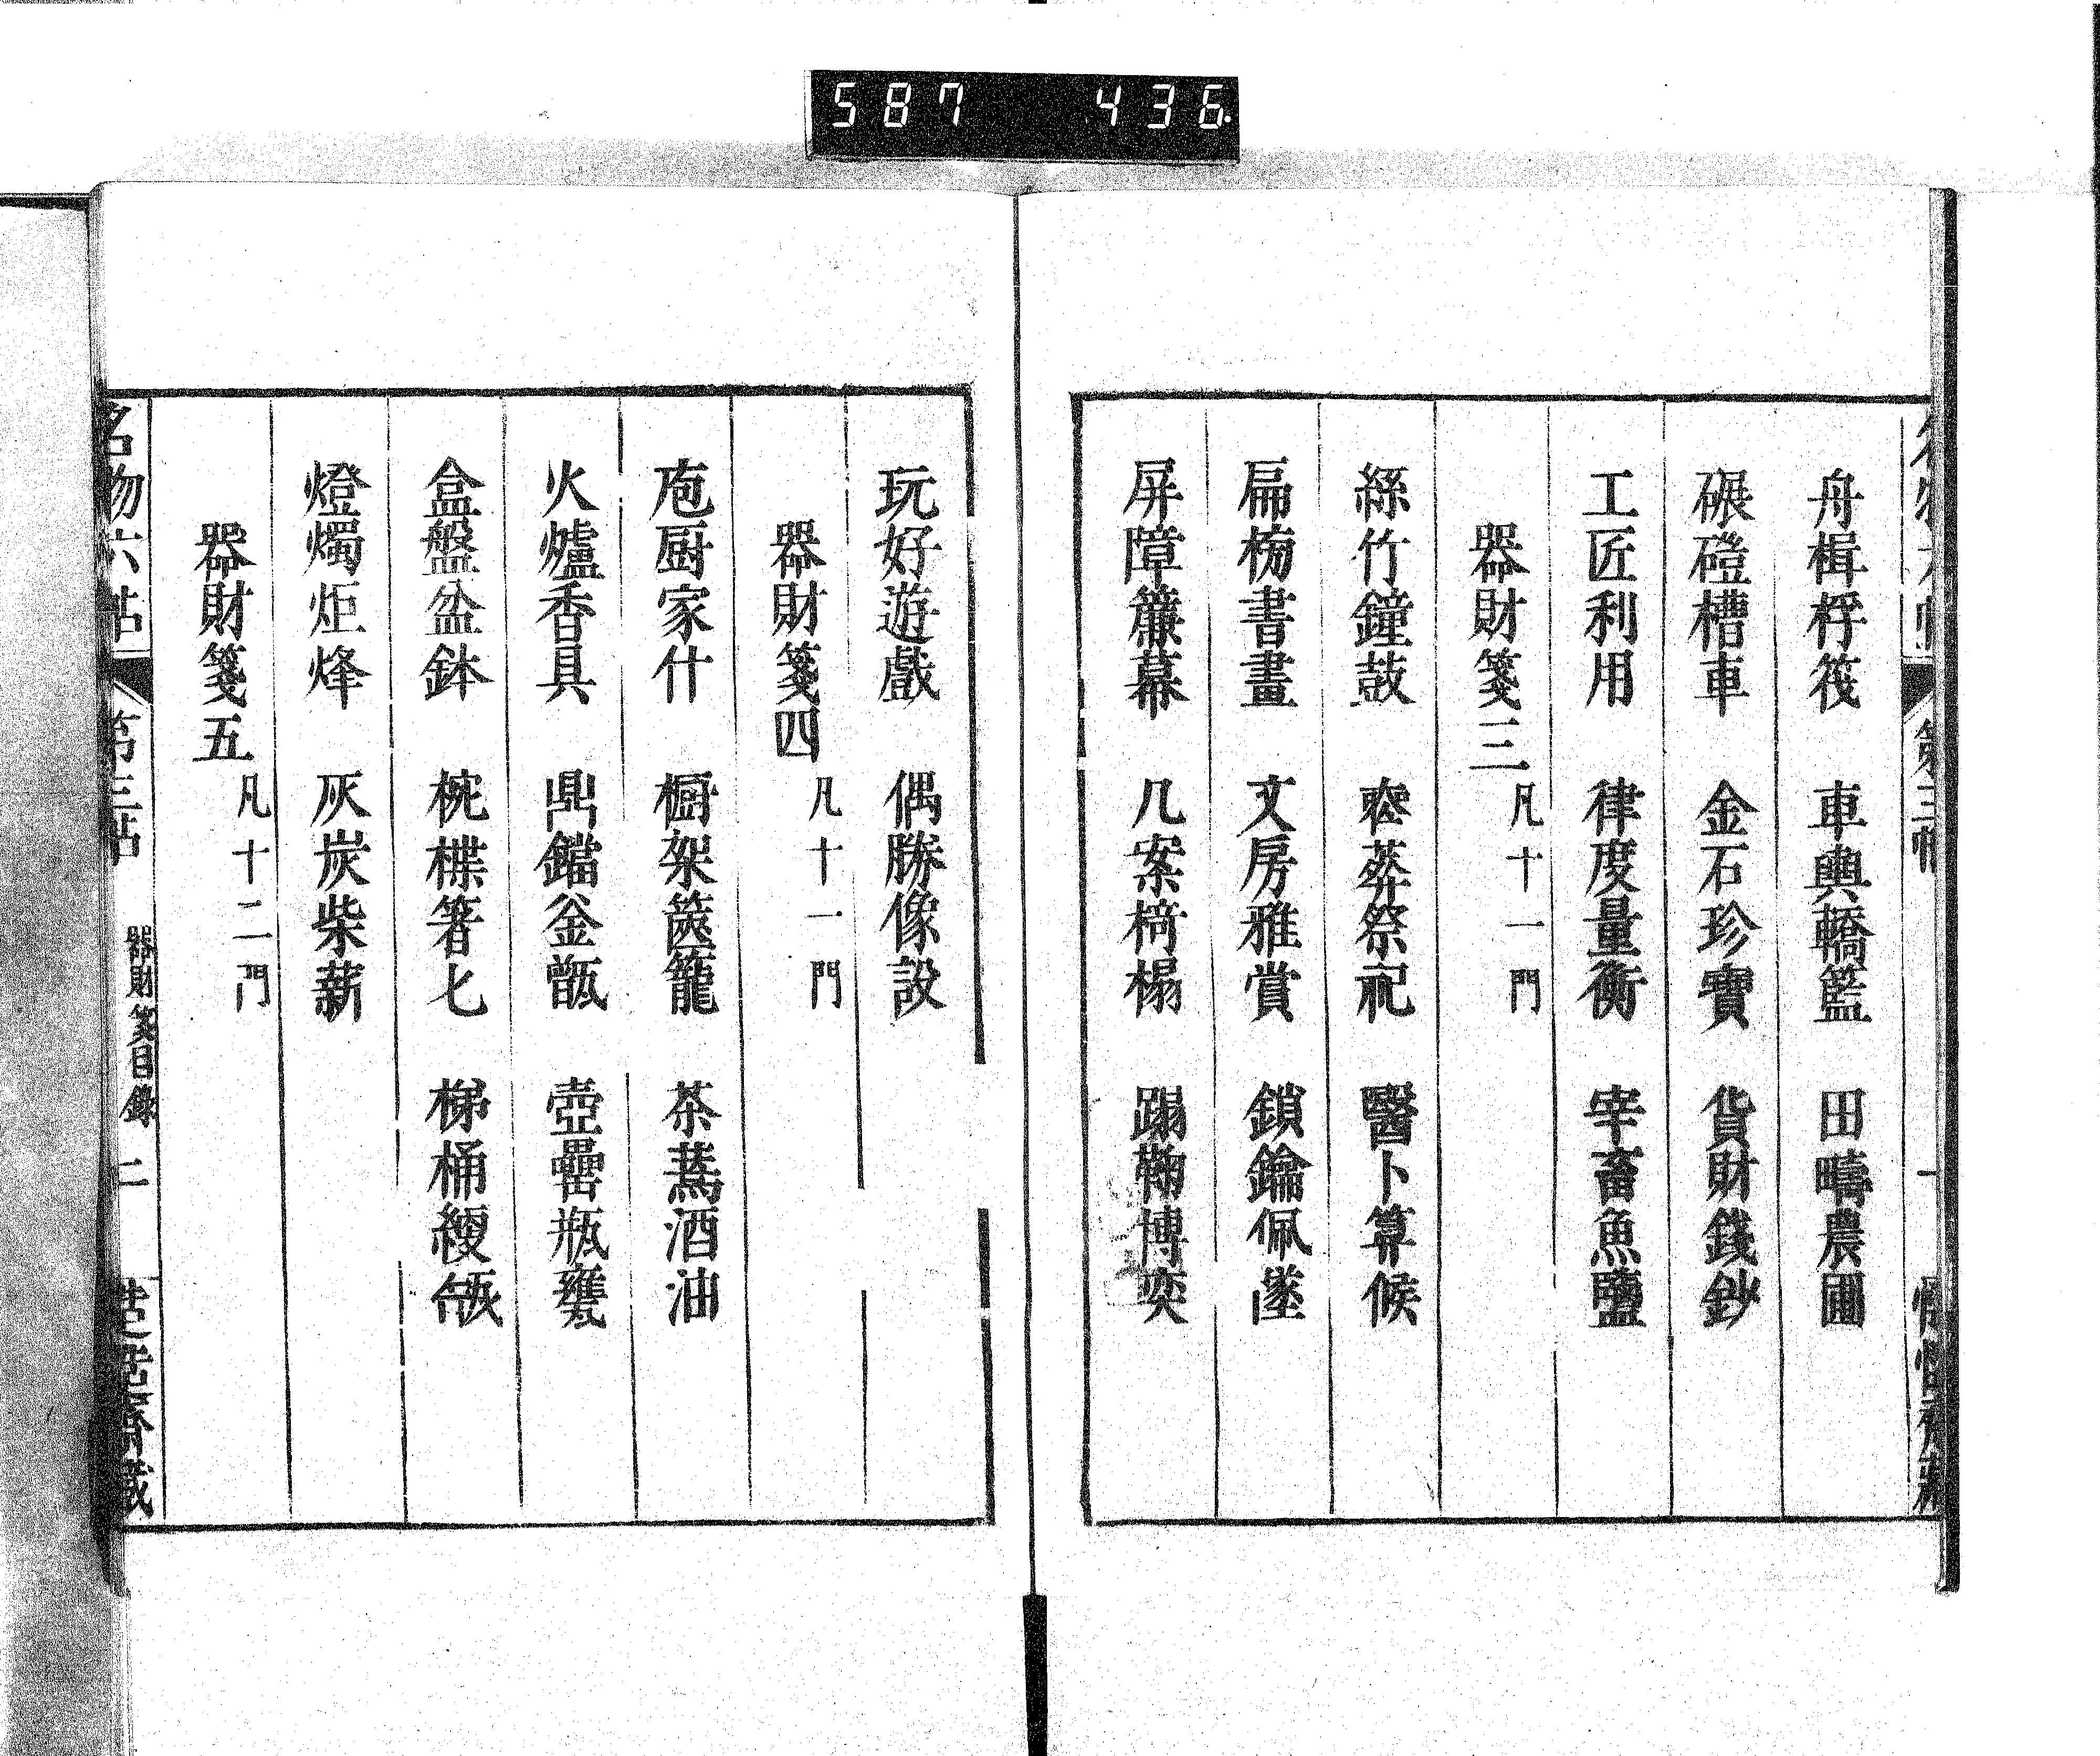 587 436.
舟楫桴筏 車輿轎籃 田疇農圃
碾磑槽車 金石珍寶 貨財錢鈔
工匠利用 律度量衡 宰畜魚鹽
器財箋三 凡十一門
絲竹鐘鼓 喪葬祭祀 醫卜算候
扁榜書畫 文房雅賞 鎖鑰佩墜
屏障簾幕 几案椅榻 蹋鞠博奕
玩好遊戲 偶勝像設
器財箋四 凡十一門
庖厨家什 橱架篋籠 茶蔫酒油
火爐香具 鼎鐺釜甑 壺罍瓶甕
盒盤盆鉢 椀楪箸匕 梯桶綆瓴
燈燭炬烽 灰炭柴薪
器財箋五 凡十二門
名物六帖 第三帖 器財箋目錄 二